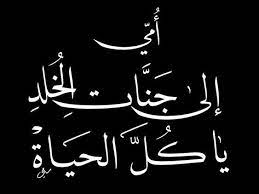 أُمّي
إلىٰ جَنَّات الخُلدِ
يا كُلَّ الحَياة